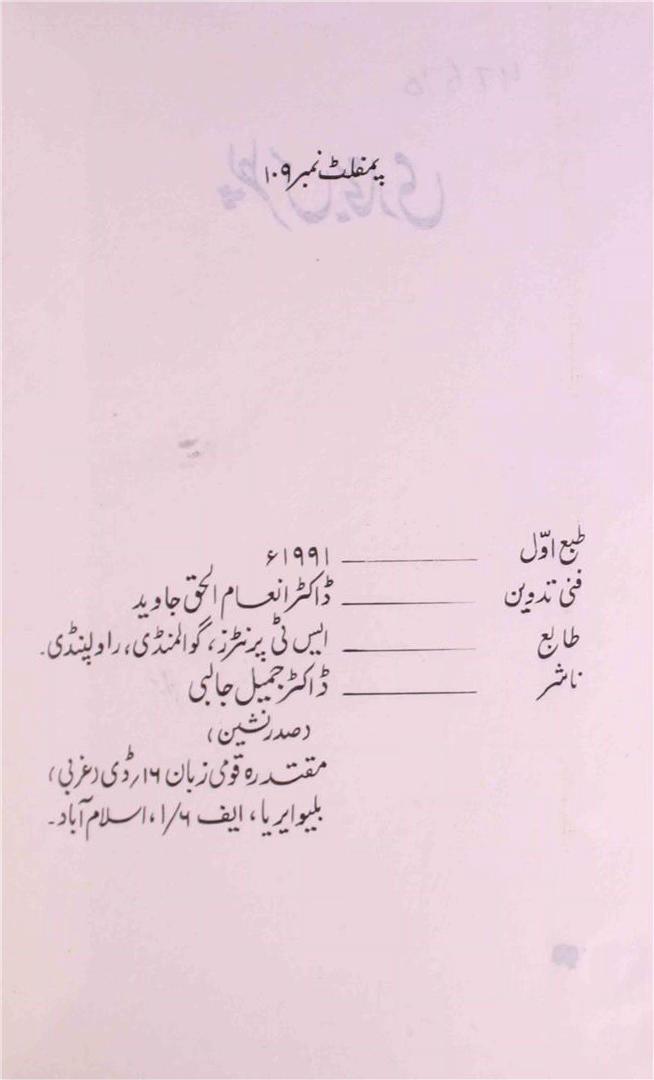 پمفلٹ نمبر ۱۰۹
طبع اوّل ـــــــ ۱۹۹۱ء
فنی تدوین ـــــــ ڈاکٹر انعام الحق جاوید
طابع ـــــــ ایس ٹی پرنٹرز، گوالمنڈی، راولپنڈی۔
ناشر ـــــــ ڈاکٹر جمیل جالبی
(صدر نشین)
مقتدرہ قومی زبان ۱۶/ڈی (غربی)
بلیو ایریا، ایف ۱/۶، اسلام آباد۔